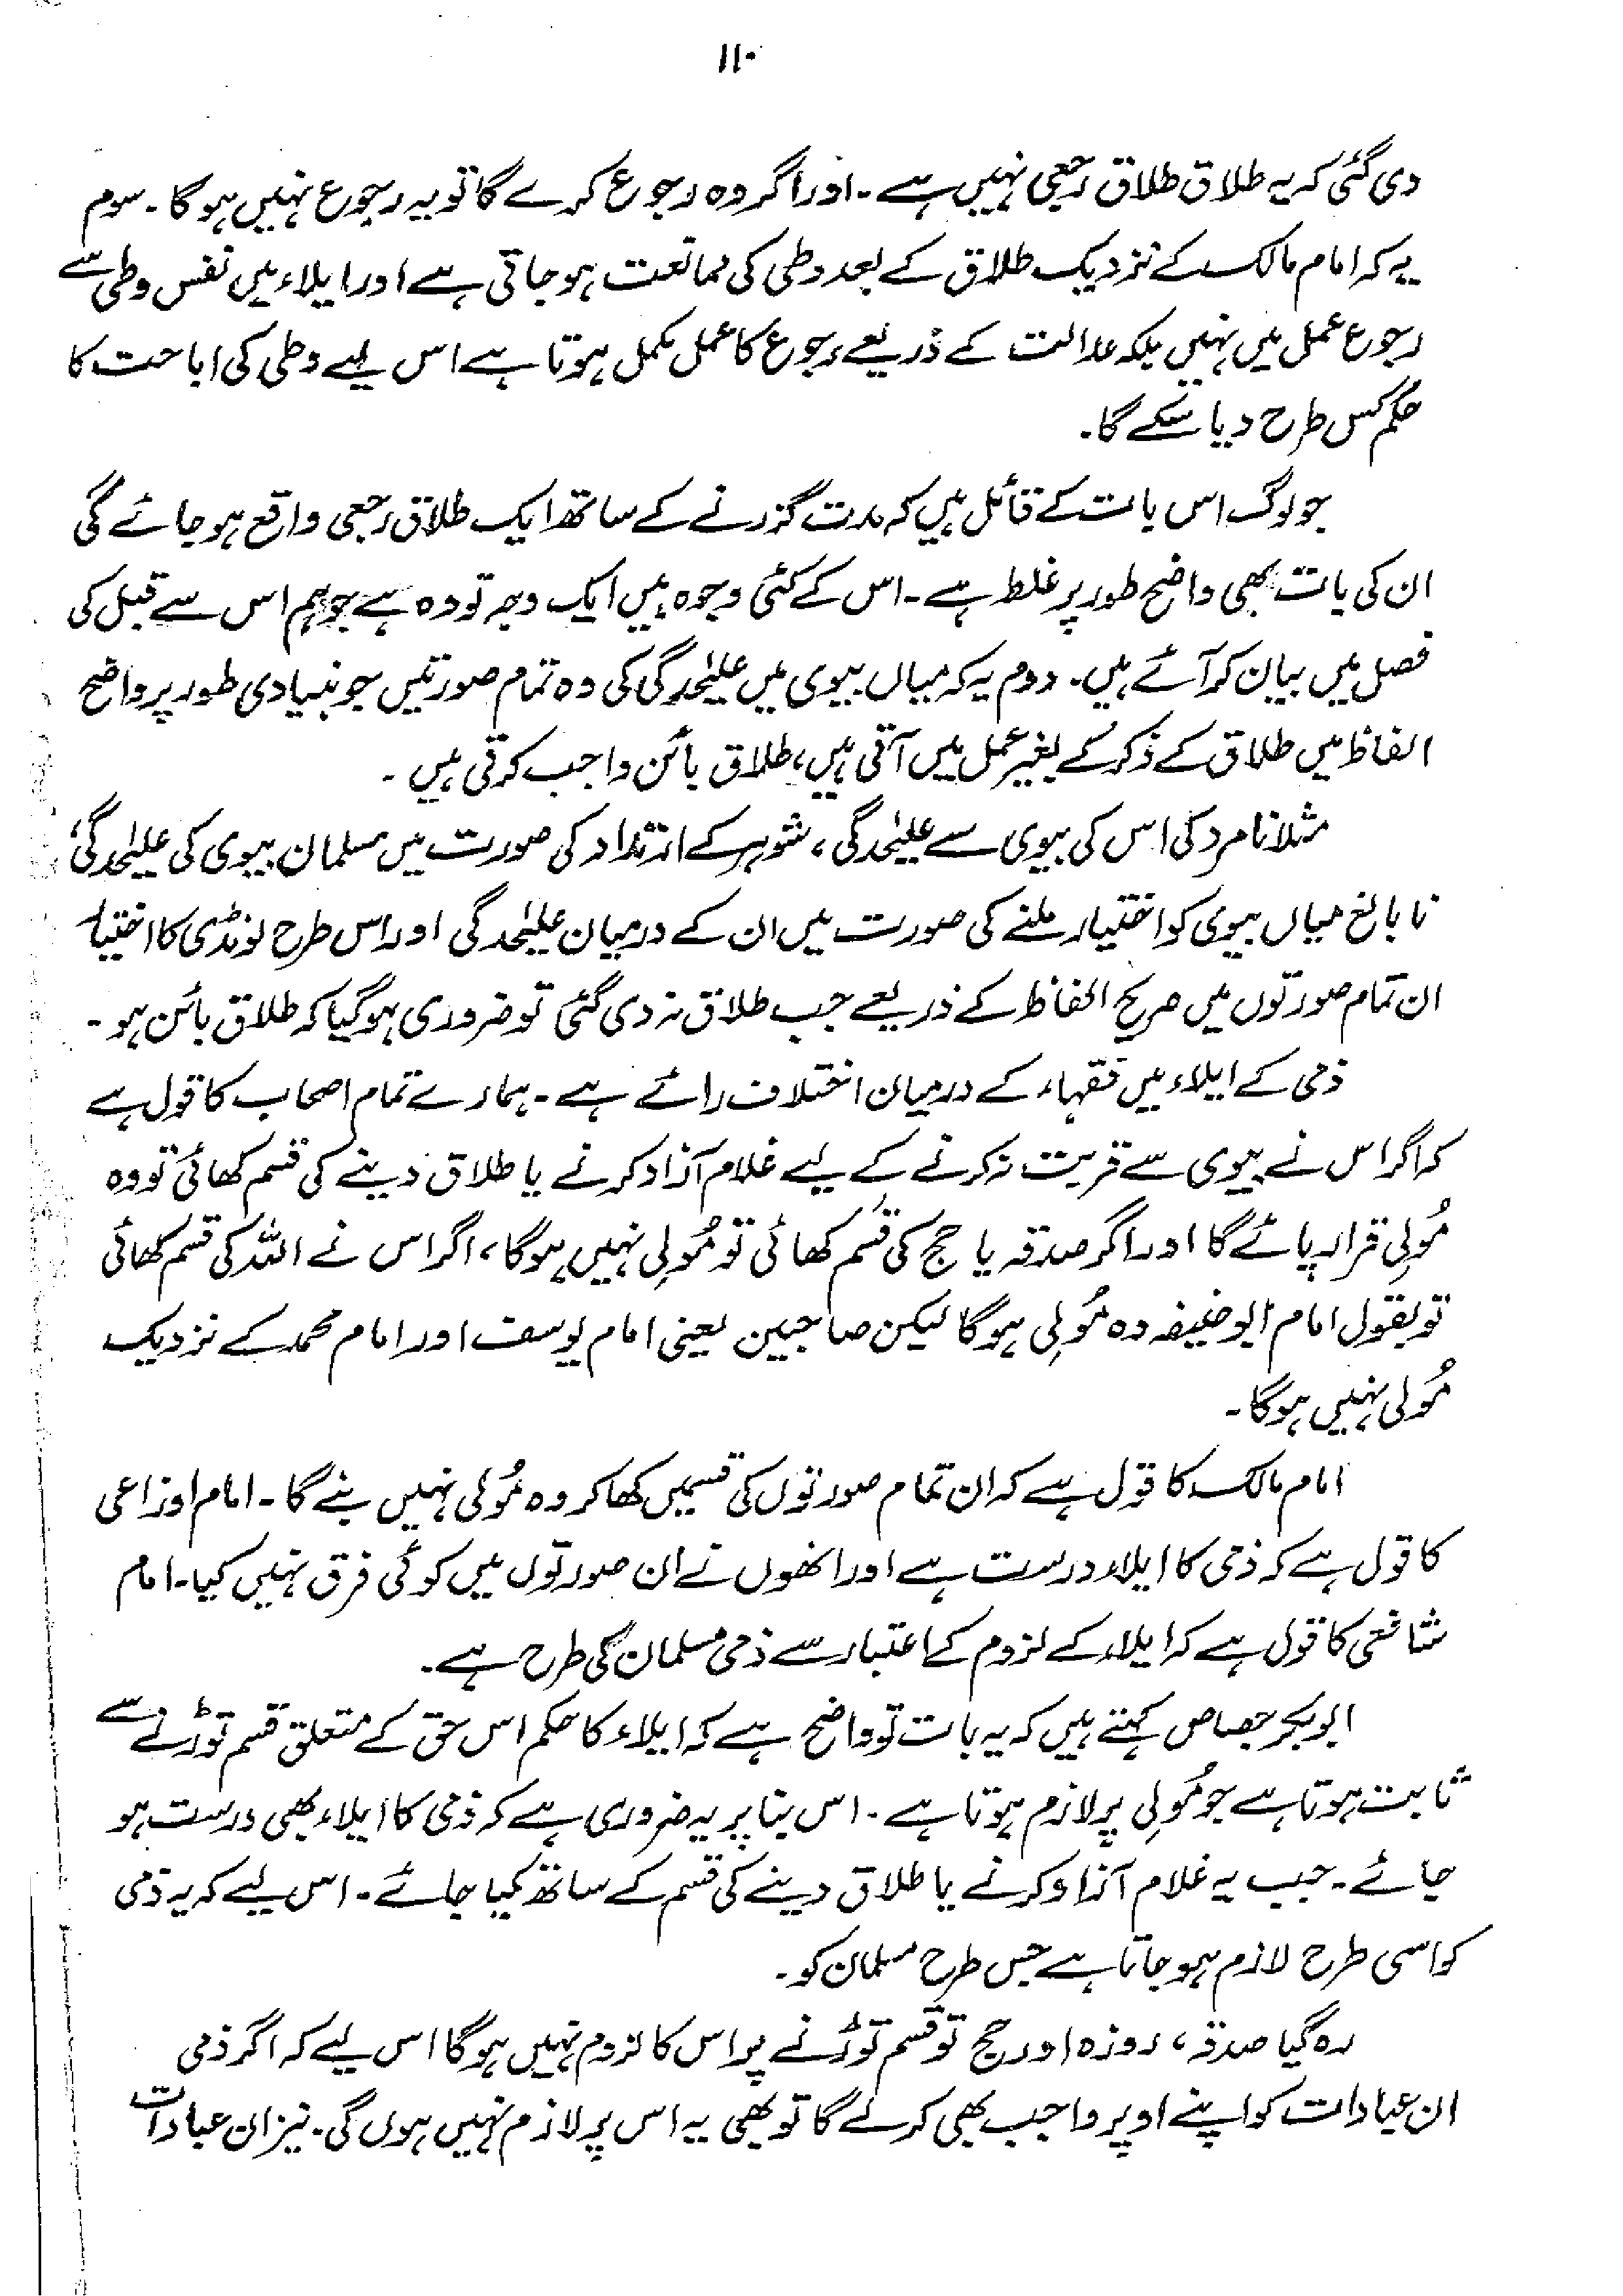 ۱۱۰
دی گئی کہ یہ طلاق طلاق رجعی نہیں ہے۔ اور اگر وہ رجوع کرے گا تو یہ رجوع نہیں ہوگا۔ سوم
یہ کہ امام مالک کے نزدیک طلاق کے بعد وطی کی ممانعت ہو جاتی ہے اور ایلاء میں نفس وطی سے
رجوع عمل میں نہیں بلکہ عدالت کے ذریعے رجوع کا عمل مکمل ہوتا ہے اس لیے وطی کی اباحت کا
حکم کس طرح دیا سکے گا۔
جو لوگ اس بات کے قائل ہیں کہ مدت گزرنے کے ساتھ ایک طلاق رجعی واقع ہو جائے گی
ان کی بات بھی واضح طور پر غلط ہے۔ اس کے کئی وجوہ ہیں ایک وجہ تو وہ ہے جو ہم اس سے قبل کی
فصل میں بیان کر آئے ہیں۔ دوم یہ کہ میاں بیوی میں علیٰحدگی کی وہ تمام صورتیں جو بنیادی طور پر واضح
الفاظ میں طلاق کے ذکر کے بغیر عمل میں آتی ہیں، طلاق بائن واجب کرتی ہیں۔
مثلا نامرد کی اس کی بیوی سے علیٰحدگی، شوہر کے ارتداد کی صورت میں مسلمان بیوی کی علیٰحدگی،
نابالغ میاں بیوی کو اختیار ملنے کی صورت میں ان کے درمیان علیٰحدگی اور اس طرح لونڈی کا اختیار
ان تمام صورتوں میں صریح الفاظ کے ذریعے جب طلاق نہ دی گئی تو ضروری ہو گیا کہ طلاق بائن ہو۔
ذمی کے ایلاء میں فقہاء کے درمیان اختلاف رائے ہے۔ ہمارے تمام اصحاب کا قول ہے
کہ اگر اس نے بیوی سے قربت نہ کرنے کے لیے غلام آزاد کرنے یا طلاق دینے کی قسم کھائی تو وہ
مُولِی قرار پائے گا اور اگر صدقہ یا حج کی قسم کھائی تو مُولِی نہیں ہوگا، اگر اس نے اللہ کی قسم کھائی
تو بقول امام ابوحنیفہ وہ مُولِی ہوگا لیکن صاحبین یعنی امام یوسف اور امام محمد کے نزدیک
مُولی نہیں ہوگا۔
امام مالک کا قول ہے کہ ان تمام صورتوں کی قسمیں کھا کر وہ مُولی نہیں بنے گا۔ امام اوزاعی
کا قول ہے کہ ذمی کا ایلاء درست ہے اور انھوں نے ان صورتوں میں کوئی فرق نہیں کیا۔ امام
شافعی کا قول ہے کہ ایلاء کے لزوم کے اعتبار سے ذمی مسلمان کی طرح ہے۔
ابوبکر جصاص کہتے ہیں کہ یہ بات تو واضح ہے کہ ایلاء کا حکم اس حق کے متعلق قسم توڑنے سے
ثابت ہوتا ہے جو مُولِی پر لازم ہوتا ہے۔ اس بنا پر یہ ضروری ہے کہ ذمی کا ایلاء بھی درست ہو
جائے۔ جب یہ غلام آزاد کرنے یا طلاق دینے کی قسم کے ساتھ کیا جائے۔ اس لیے کہ یہ ذمی
کو اسی طرح لازم ہو جاتا ہے جس طرح مسلمان کو۔
رہ گیا صدقہ، روزہ اور حج تو قسم توڑنے پر اس کا لزوم نہیں ہوگا اس لیے کہ اگر ذمی
ان عبادات کو اپنے اوپر واجب بھی کرلے گا تو بھی یہ اس پر لازم نہیں ہوں گی۔ نیز ان عبادات